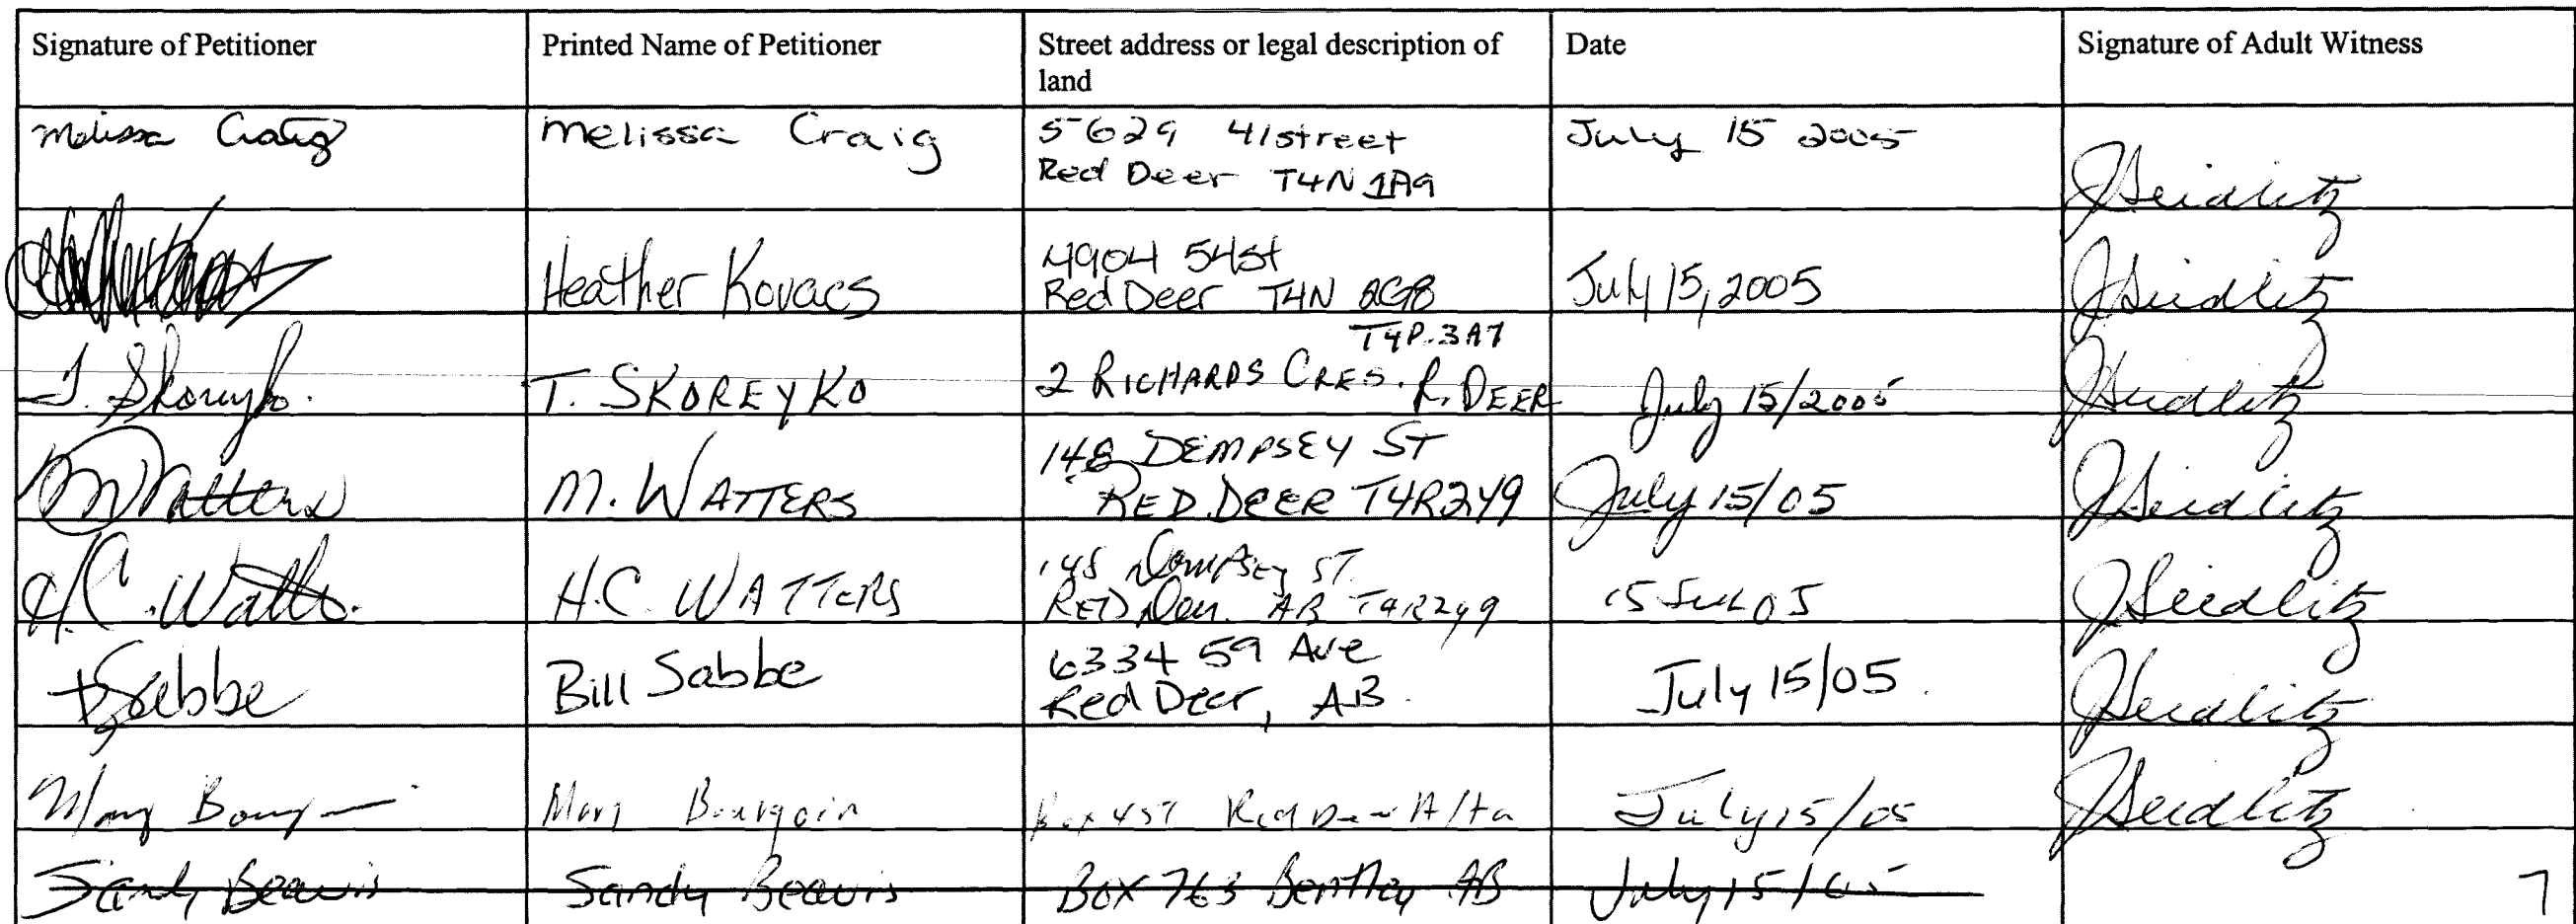 Signature of Petitioner
Printed Name of Petitioner
Street address or legal description of
land
Date
Signature of Adult Witness
Melissa Craig
Melissa Craig
5629 41street
Red Deer T4N 1A9
July 15 2005
JSeidlitz
Heather Kovacs
4904 54st
Red Deer T4N 2G8
July 15, 2005
JSeidlitz
T. Skoreyko.
T. SKOREYKO
T4P.3A7
2 RICHARDS CRES. R. DEER
July 15/2005
JSeidlitz
M Watters
M. WATTERS
148 DEMPSEY ST
RED DEER T4R2Y9
July 15/05
JSeidlitz
H.C. Watters
H.C. WATTERS
148 Dempsey ST.
RED Deer. AB T4R2Y9
15 JUL 05
JSeidlitz
BSabbe
Bill Sabbe
6334 59 Ave
Red Deer, AB.
July 15/05.
JSeidlitz
Mary
Mary Bourgoin
Box 457 Red Deer Alta
July 15/05
JSeidlitz
Sandy Beauvis
Sandy Beauvis
Box 763 Bentley AB
July 15/05
7